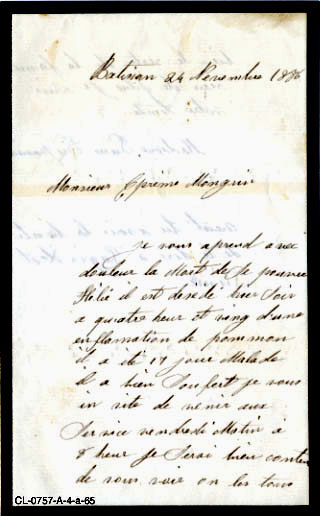 Batiscan 24 Novembre 1886
Monsieur Ephrème Mongrin
je vous aprend avec
douleur la Mort de se pauvre
Helié il est desedé hier Soir
a quatre heur et ving d'une
enflamation de pommon
il a été 17 jour Malade
il a bien Soufert je vous
in vite de venir aux
Service vendredi Matin a
8 heur je Serai bien conten
de vous voir on les tous
CL-0757-A-4-a-65